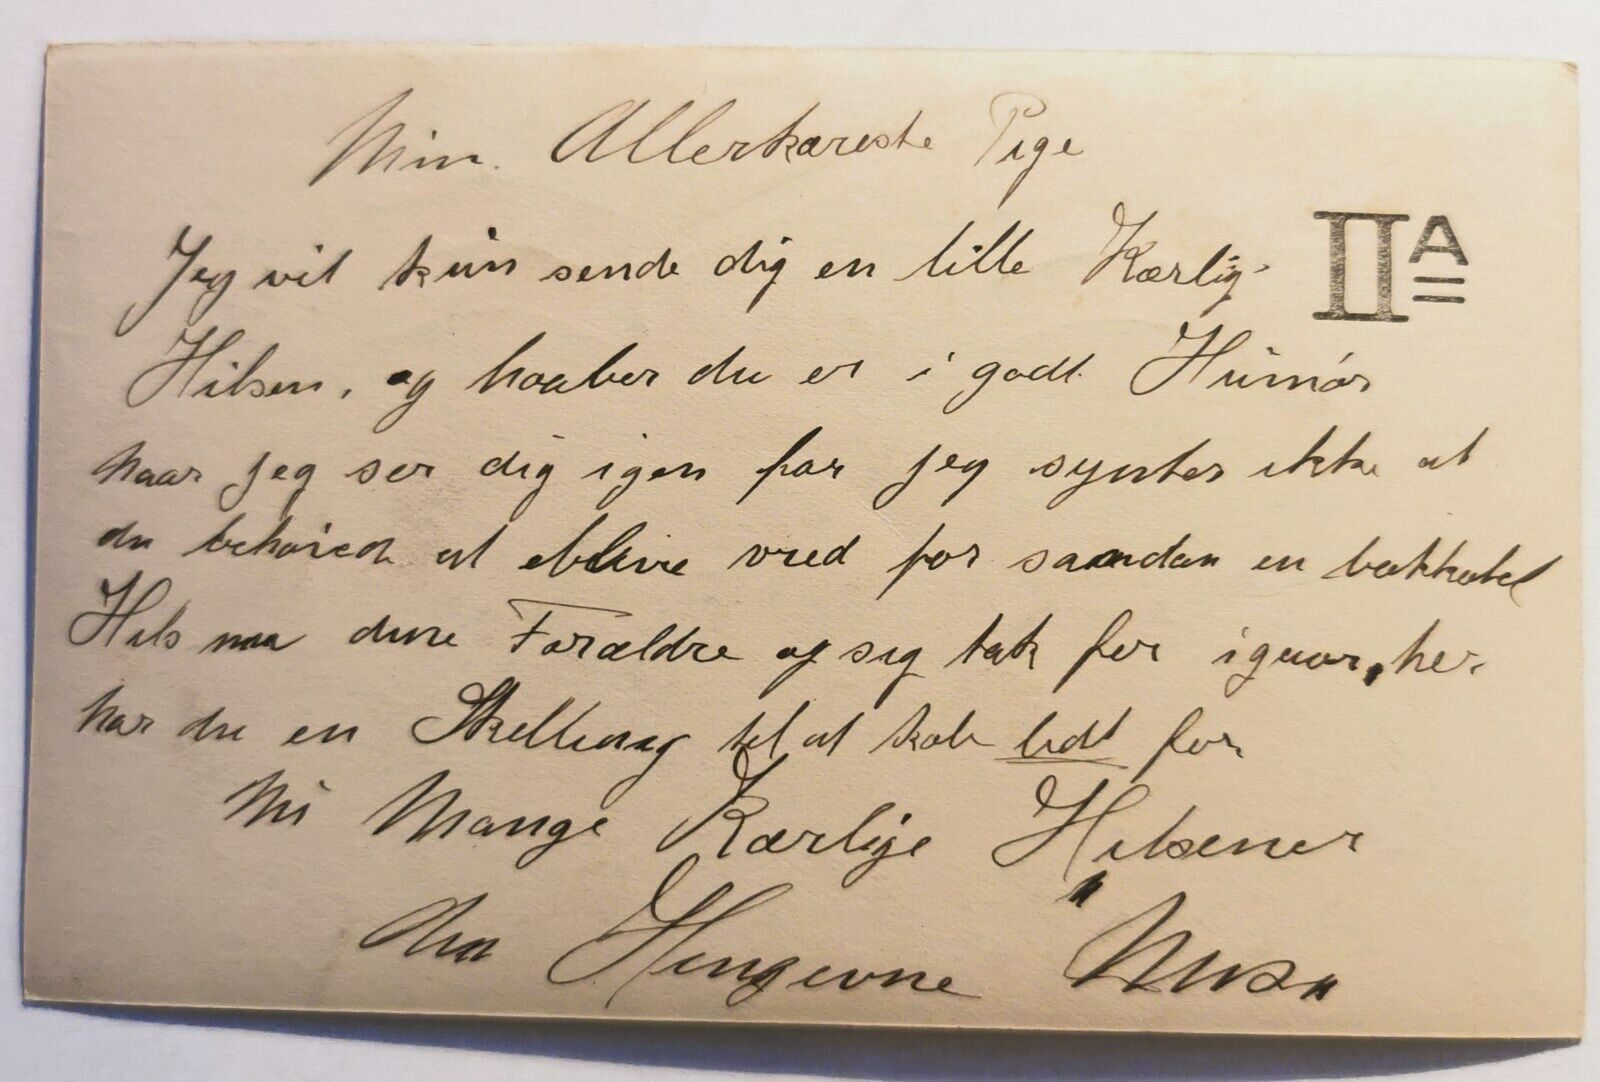 Min. Allerkæreste Pige
Jeg vil kun sende dig en lille Kærlig-
IIA
Hilsen, og haaber du er i godt Humør
naar jeg ser dig igen for jeg syntes ikke at
du behøved at blive vred for saadan en
Hils dine Forældre og sig tak for igaar, her
har du en Skelling til at køb lidt for
Mange Kærlige Hilsener
"